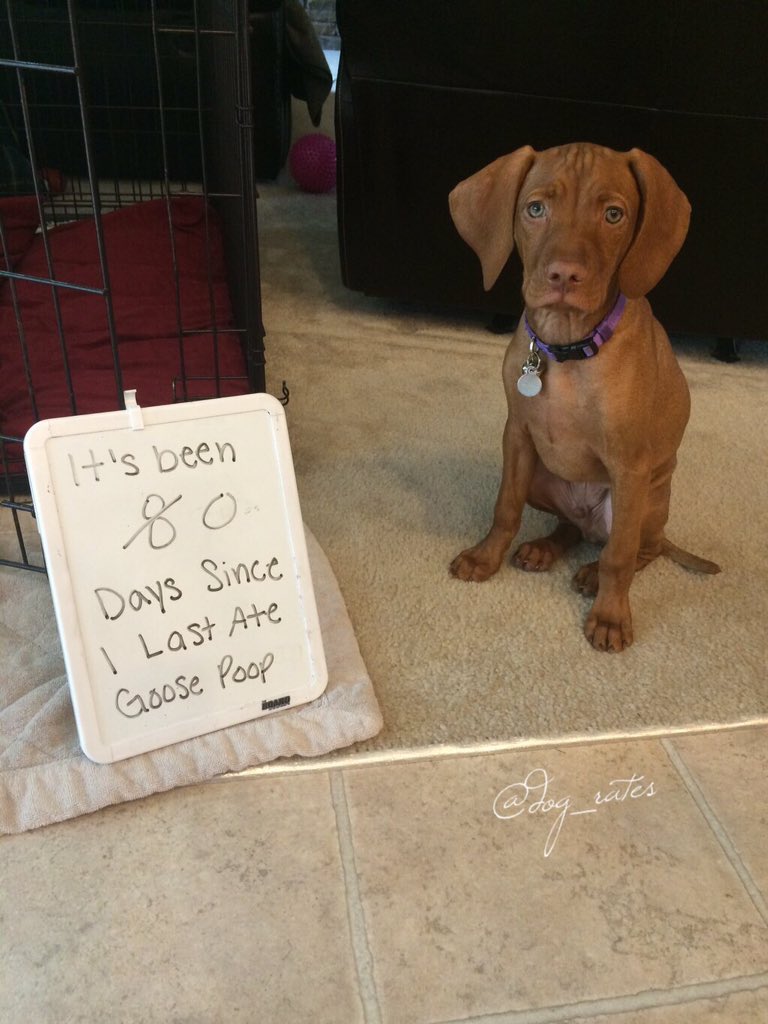 It's been
8 0
Days Since
I Last Ate
Goose Poop
BOARD
@dog_rates